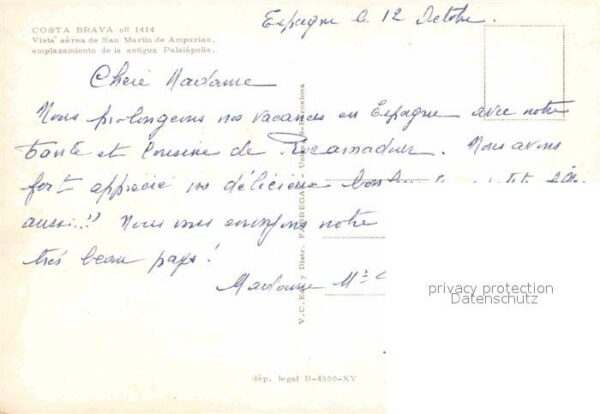 COSTA BRAVA nº 1414
Vista aérea de San Martín de Ampurias,
emplazamiento de la antigua Palaiápolis.
Espagne le 12 Octobre.
Chère Madame
Nous prolongeons nos vacances en Espagne avec notre
tante et Cousine de Rocamadour. Nous avons
fort apprécié vos délicieux
aussi!! Nous vous envoyons notre
très beau pays!
Madame
V. C. Edit. y Distr. FABREGAT - Unión Barcelona
dép. legal B-4550-XV
privacy protection
Datenschutz